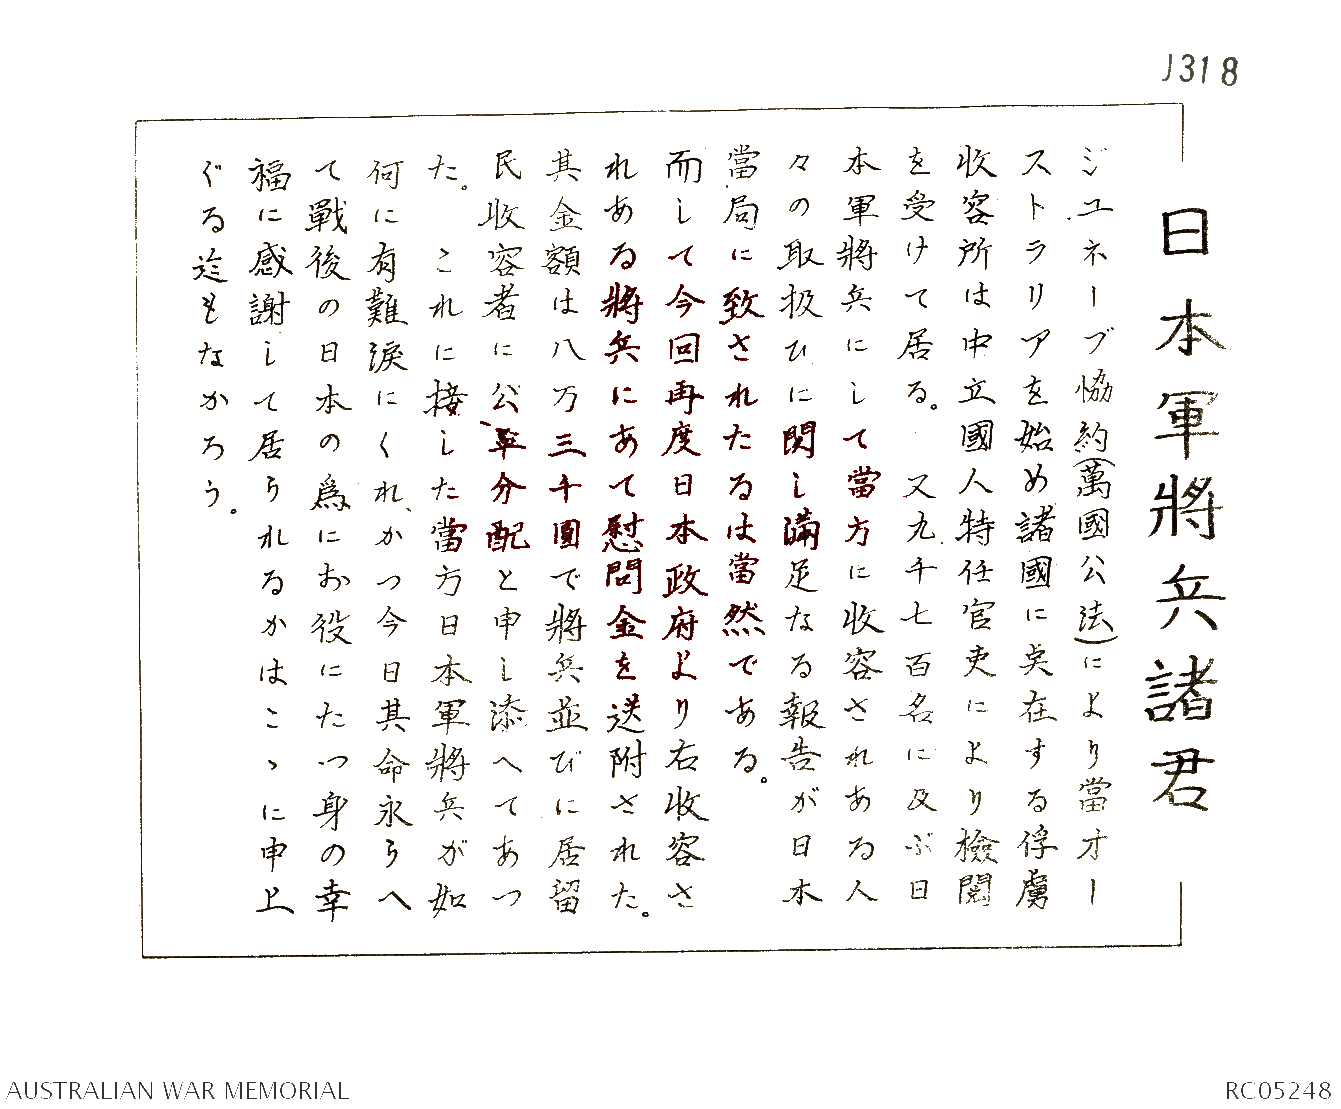 J318
日本軍將兵諸君
ジユネーブ協約(萬國公法)により當オー
ストラリアを始め諸國に点在する俘虜
收容所は中立國人特任官吏により檢閲
を受けて居る。　又九千七百名に及ぶ日
本軍將兵にして當方に收容されある人
々の取扱ひに関し滿足なる報告が日本
當局に致されたるは當然である。
而して今回再度日本政府より右收容さ
れある將兵にあて慰問金を送附された。
其金額は八万三千圓で將兵並びに居留
民收容者に公平分配と申し添へてあつ
た。　これに接した當方日本軍將兵が如
何に有難淚にくれ、かつ今日其命永らへ
て戰後の日本の爲にお役にたつ身の幸
福に感謝して居られるかはこゝに申上
ぐる迄もなかろう。
AUSTRALIAN WAR MEMORIAL
RC05248